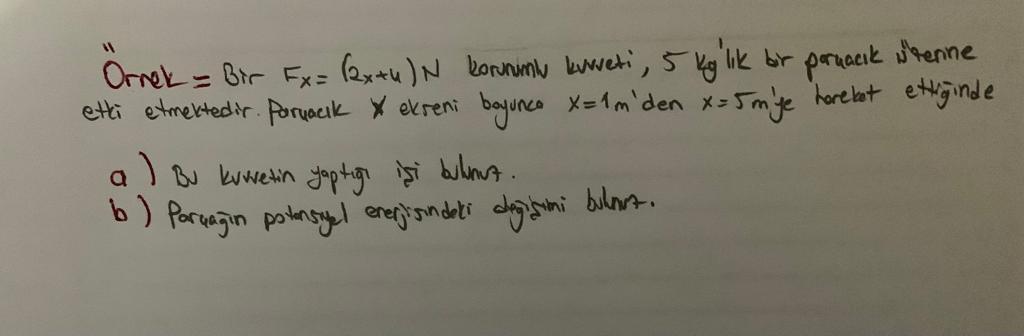 Örnek = Bir Fx = (2x+4)N korunumlu kuvveti, 5 kg'lık bir parçacık üzerine
etki etmektedir. Parçacık x ekseni boyunca x=1m'den x=5m'ye hareket ettiğinde
a) Bu kuvvetin yaptığı işi bulunuz.
b) Parçacığın potansiyel enerjisindeki değişimi bulunuz.